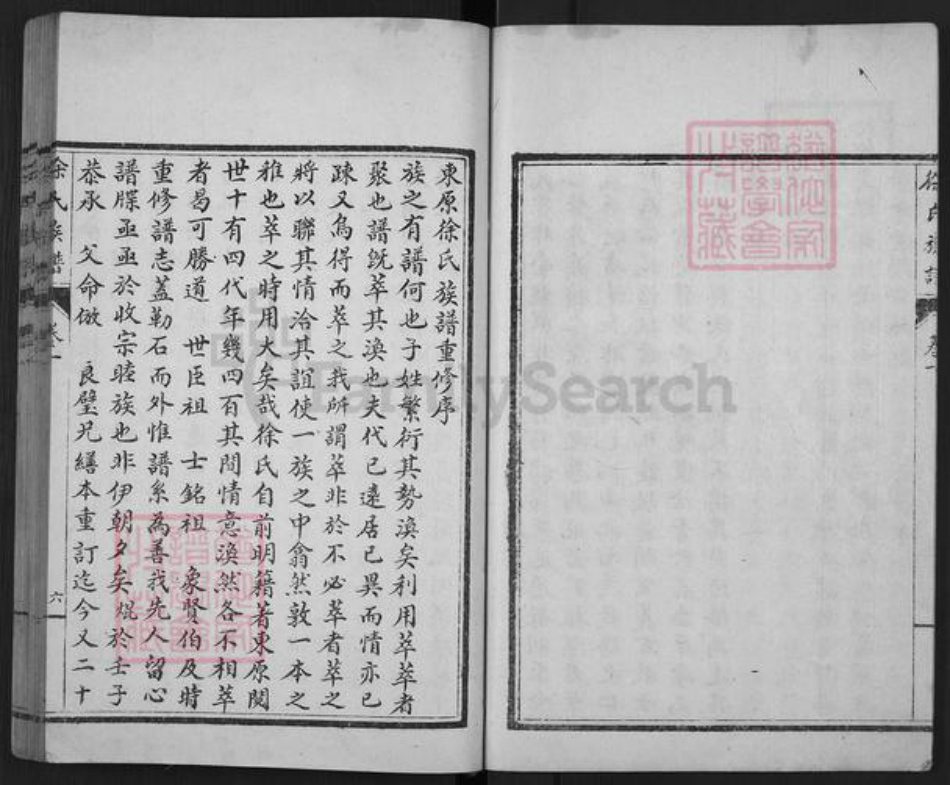 徐氏族譜
卷一
東原徐氏族譜重修序
族之有譜何也子姓繁衍其勢渙矣利用萃萃者
聚也譜既萃其渙也夫代已遠居已異而情亦已
疎又烏得而萃之哉所謂萃非於不必萃者萃之
將以聯其情洽其誼使一族之中翕然敦一本之
雅也萃之時用大矣哉徐氏自前明籍著東原閱
世十有四代年幾四百其間情意渙然各不相萃
者曷可勝道 世臣祖 士銘祖 象賢伯及時
重修譜志蓋勒石而外惟譜系為善我先人留心
譜牒亟亟於收宗睦族也非伊朝夕矣焜於壬子
恭承 父命倣 良璧兄繕本重訂迄今又二十
徐氏族譜
卷一
六
FamilySearch